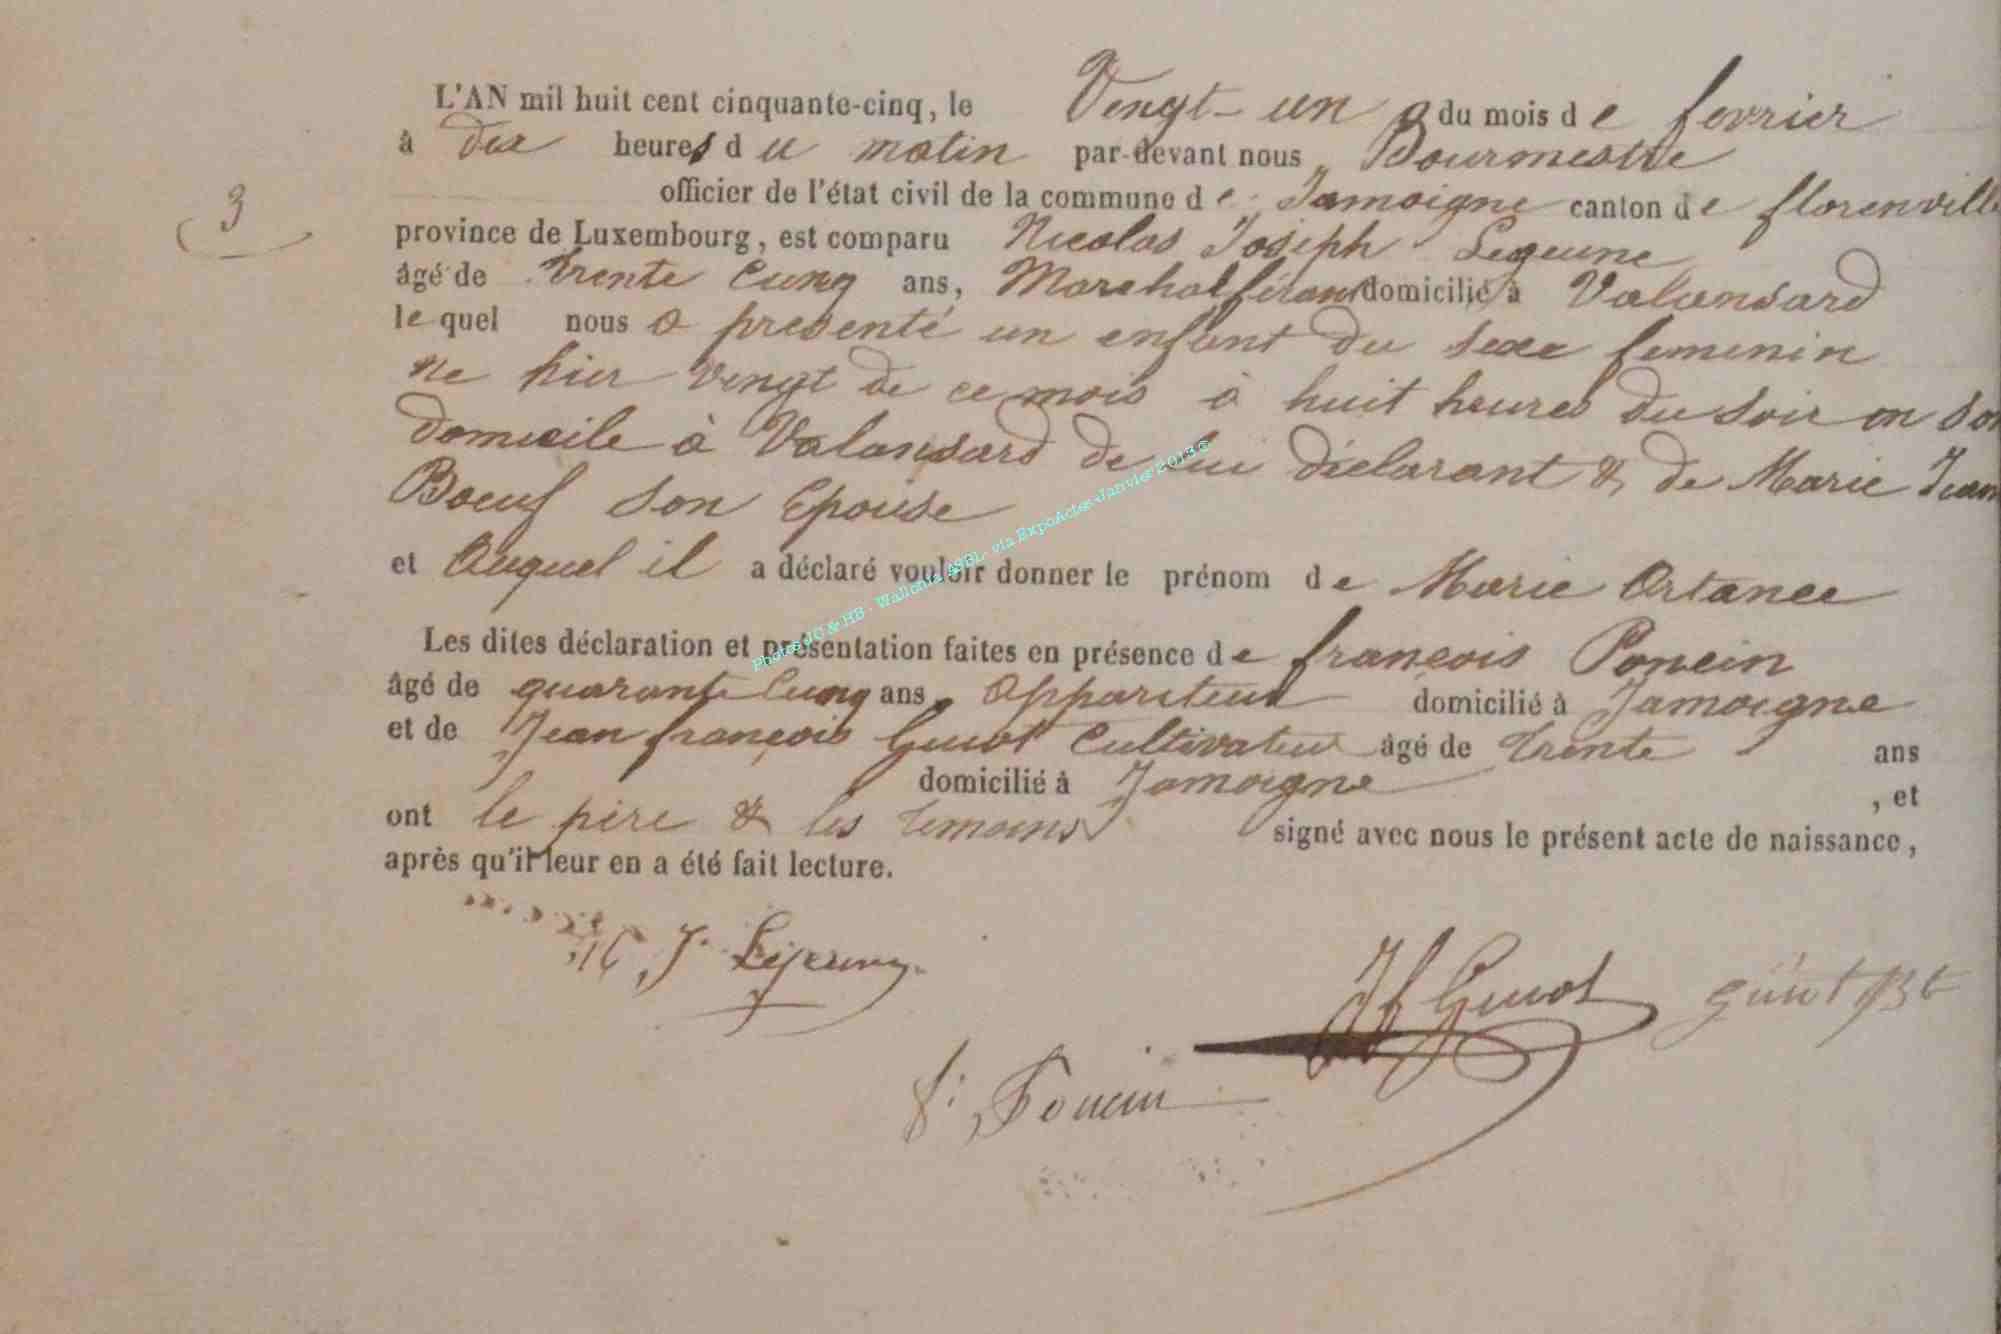 L'AN mil huit cent cinquante-cinq, le Vengt-un du mois de fevrier
à dix heures du matin par-devant nous Bourmestre
officier de l'état civil de la commune de Jamoigne canton de florenvill
3
province de Luxembourg, est comparu Nicolas Joseph Lejeune
âgé de trente Cinq ans, Marehal feran domicilié à Valansard
le quel nous a presenté un enfant du sexe femenin
ne hier vingt de ce mois à huit heures du soir en son
domicile à Valansard de lui déclarant & de Marie Jean
Boeuf son Epouse
et Auquel il a déclaré vouloir donner le prénom de Marie Ortance
Les dites déclaration et présentation faites en présence de françois Poncin
âgé de quarante Cinq ans, Appariteur domicilié à Jamoigne
et de Jean françois Guiot Cultivateur âgé de trente ans
domicilié à Jamoigne , et
ont le père & les temoins signé avec nous le présent acte de naissance,
après qu'il leur en a été fait lecture.
N J Lejeune
Jf Guiot guiot Bt
f: Poncin
Photos JC & HB - Wallonia ASBL - via ExpoActes-Janvier 2013 ©